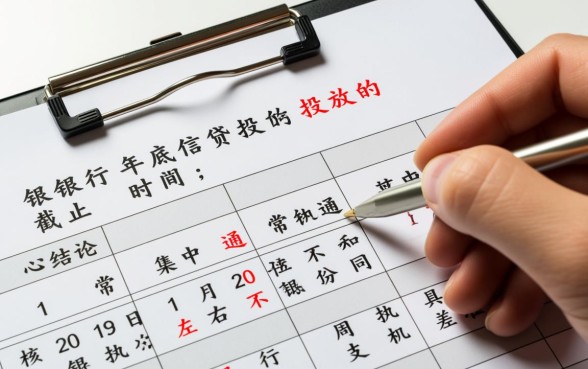 银银行 年底信贷投的 投放的
截止 时间；
心结论 集中 通 通 其中
1 常 1月20 不 和
左 右 不 银 份 同
核 20 19 日 周 执 具
银 执 行 支 机 差